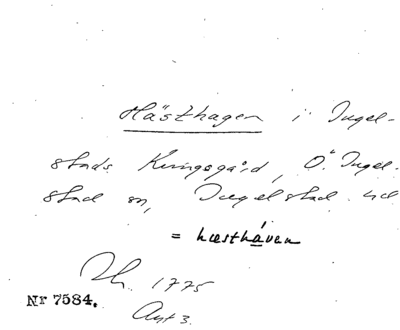 Hästhagen i Ingel-
stads Kungsgård, Ö. Ingel-
stad sn, Ingelstad hd
= hæsthaven
1775
Nr 7584.
Akt 3.